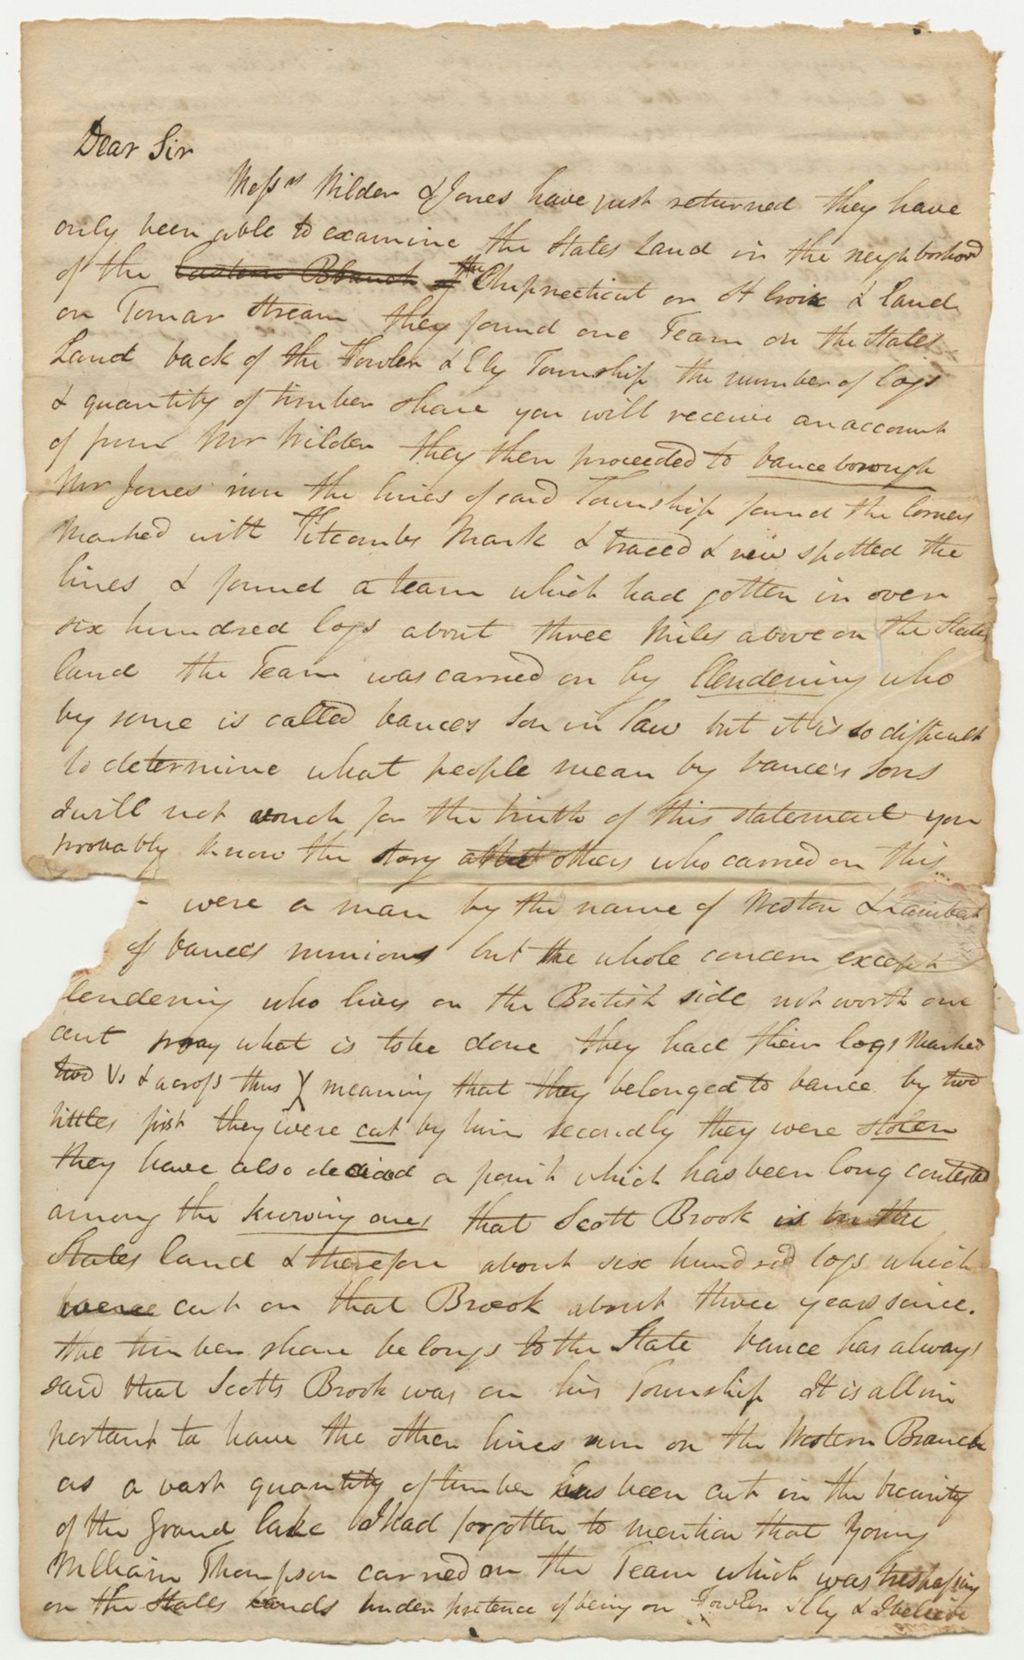 Dear Sir
Messrs Wilder & Jones have just returned they have
only been able to examine the States Land in the neighborhood
of the Eastern Branch of the Cheputnecticut or St Croix & land
on Tomar stream they found one Team on the States
Land back of the Fowler & Ely Township the number of logs
& quantity of timber share you will receive an account
of from Mr Wilder they then proceeded to Vanceborough
Mr Jones run the lines of said Township found the Corners
marked with Titcombs Mark & traced & new spotted the
lines & found a team which had gotten in over
six hundred logs about three Miles above on the States
land the Team was carried on by Clendening who
by some is called Vances Son in law but it is so difficult
to determine what people mean by Vance's Sons
I will not vouch for the truth of this statement you
probably know the story others who carried on this
were a man by the name of Weston &
of Vances minions but the whole concern except
lendening who lives on the British side not worth one
cent pray what is to be done they had their logs marked
two Vs & across thus X meaning that they belonged to Vance by two
titles first they were cut by him secondly they were stolen
they have also decided a point which has been long contested
among the knowing ones that Scott Brook is in the
States land & therefore about six hundred logs which
were cut on that Brook about three years since.
the timber share belongs to the State Vance has always
said that Scotts Brook was on his Township It is all im
portant to have the other lines run on the Western Branch
as a vast quantity of timber has been cut in the vicinity
of the Grand lake I had forgotten to mention that Young
William Thompson carried on the Team which was trespassing
on the States lands under pretence of being on Fowler & Ely & I believe